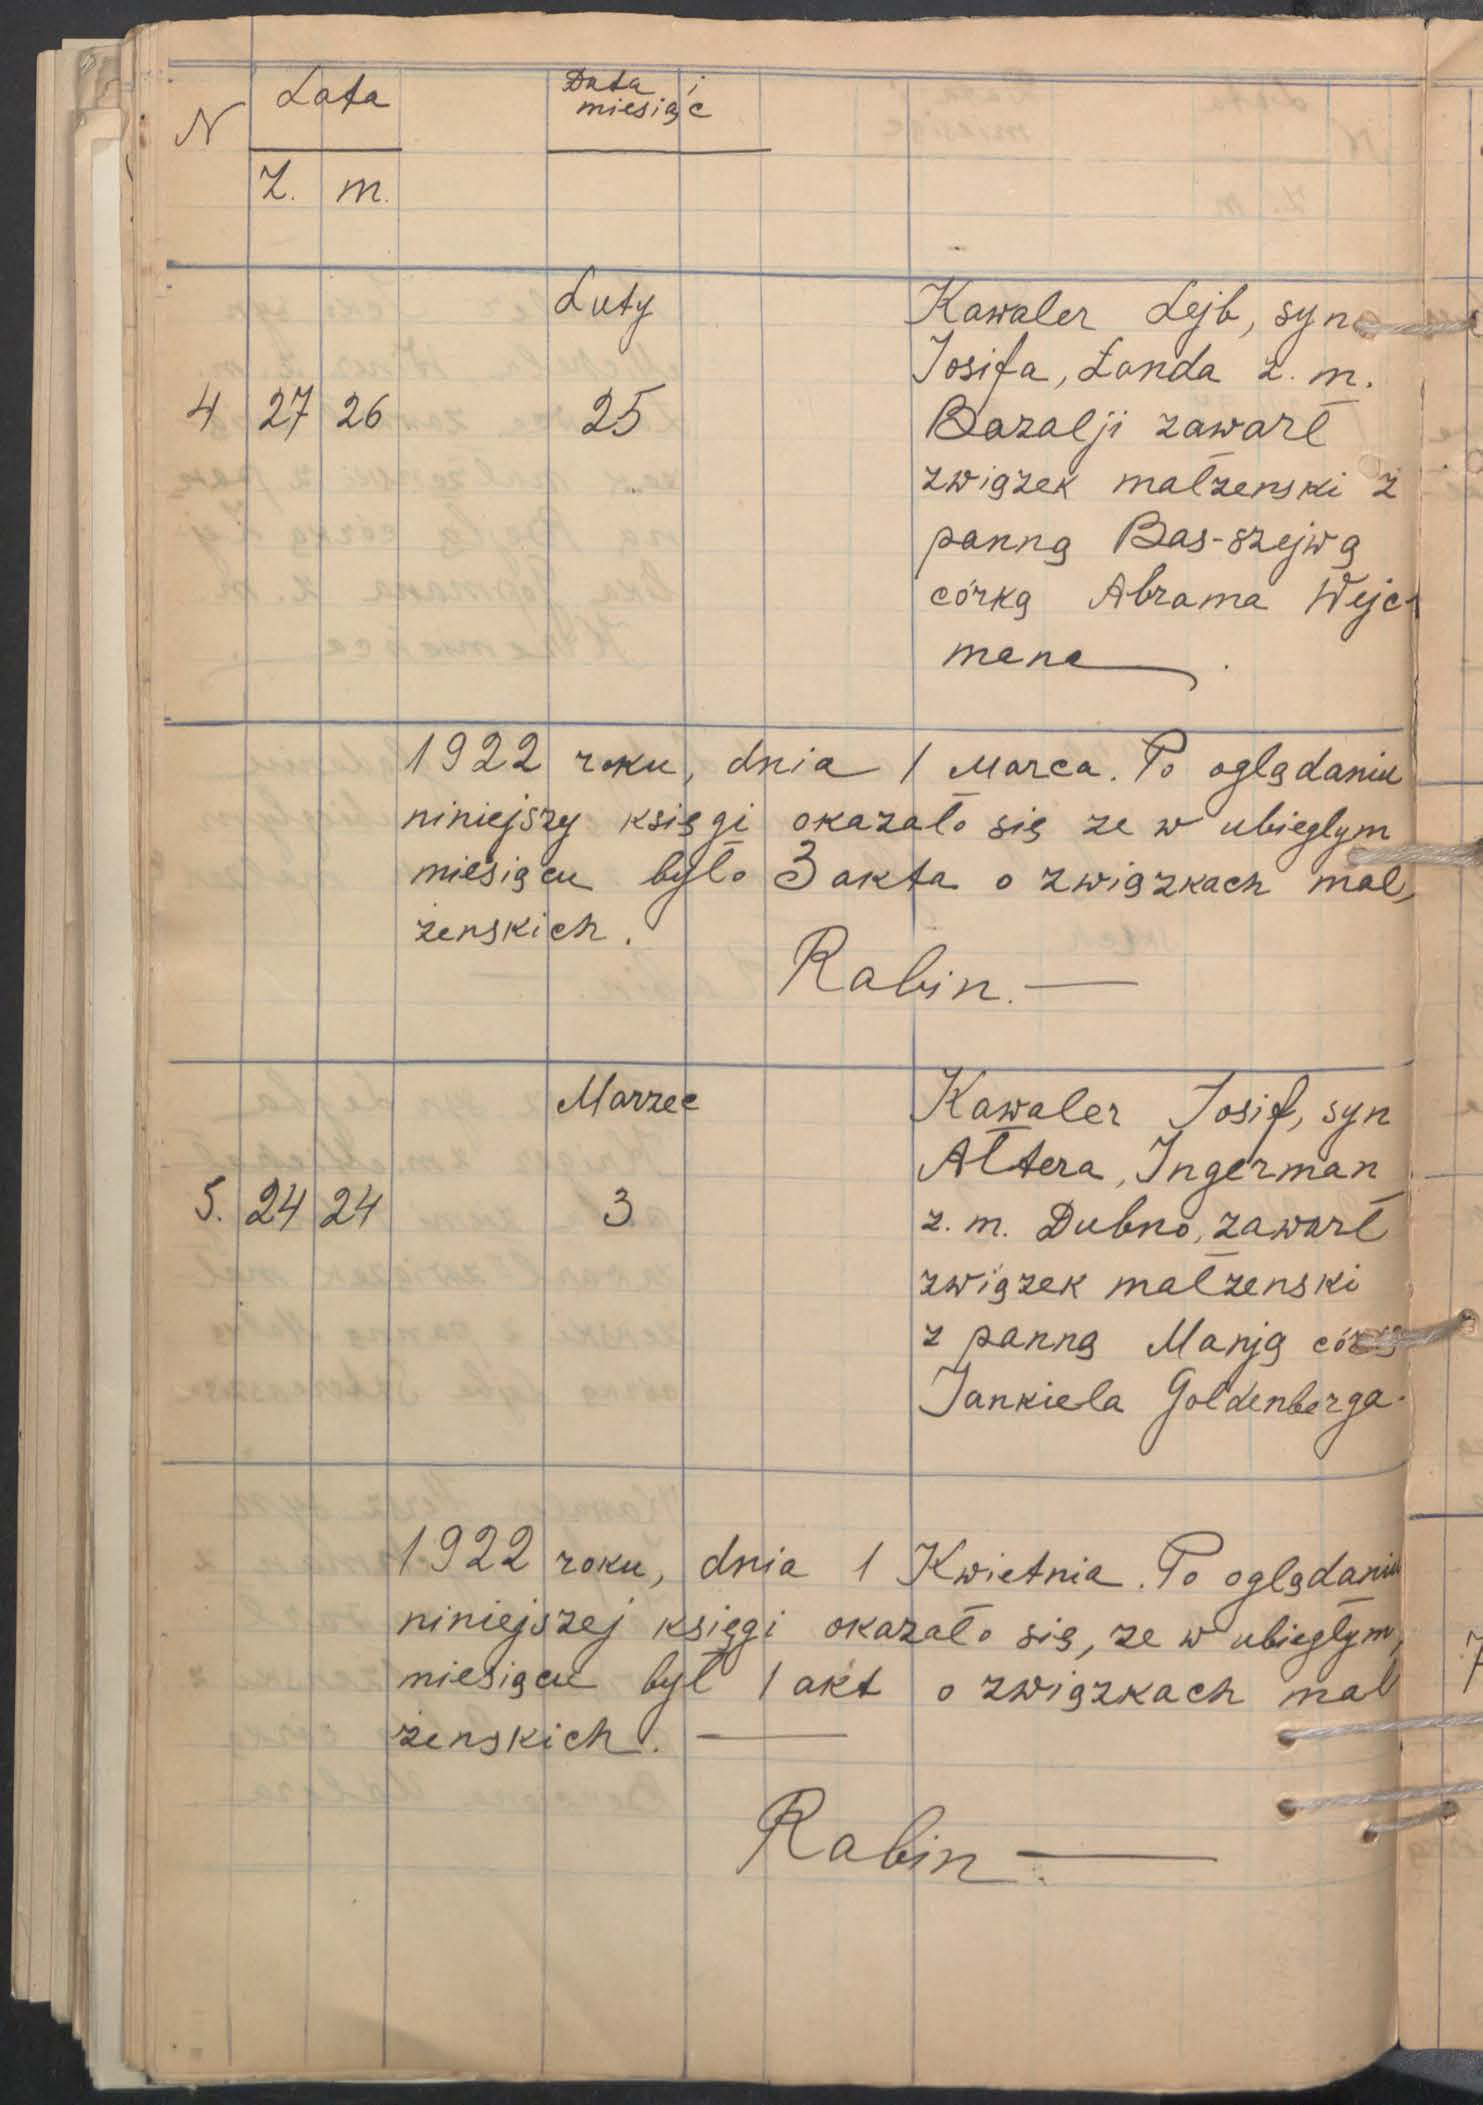 N
Lata
Data i
miesiąc
Ż. m.
Luty
4 27 26 25
Kawaler Lejb, syn
Iosifa, Łanda z. m.
Bazalji zawarł
związek małzenski z
panną Bas-szejwą
córką Abrama Wejc-
mana
1922 roku, dnia 1 Marca. Po oglądaniu
niniejszy księgi okazało się ze w ubieglym
miesiącu było 3 akta o związkach mał,
żenskich.
Rabin.
Marzec
5. 24 24 3
Kawaler Iosif, syn
Altera, Ingerman
z. m. Dubno, zawarł
związek małzenski
z panną Manją córką
Jankiela Goldenberga.
1922 roku, dnia 1 Kwietnia. Po oglądaniu
niniejszej księgi okazało się, ze w ubiegłym,
miesiącu był 1 akt o związkach mał
żenskich.
Rabin
7